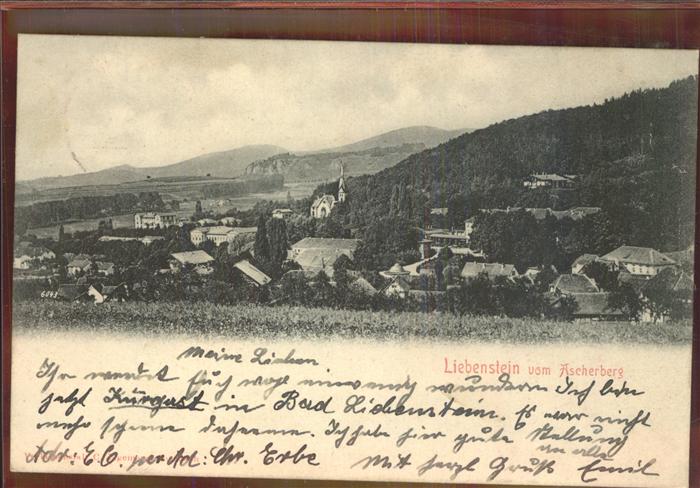 6843
Liebenstein vom Ascherberg.
Meine Lieben
Ihr werdet Euch wohl ein wenig wundern Ich bin
jetzt Kurgast in Bad Liebenstein. Es war nicht
mehr schöne daheime. Ich habe hier gute Stellung
Adr. E. C. per Ad: Chr. Erbe
Mit herzl Gruß an alle Emil